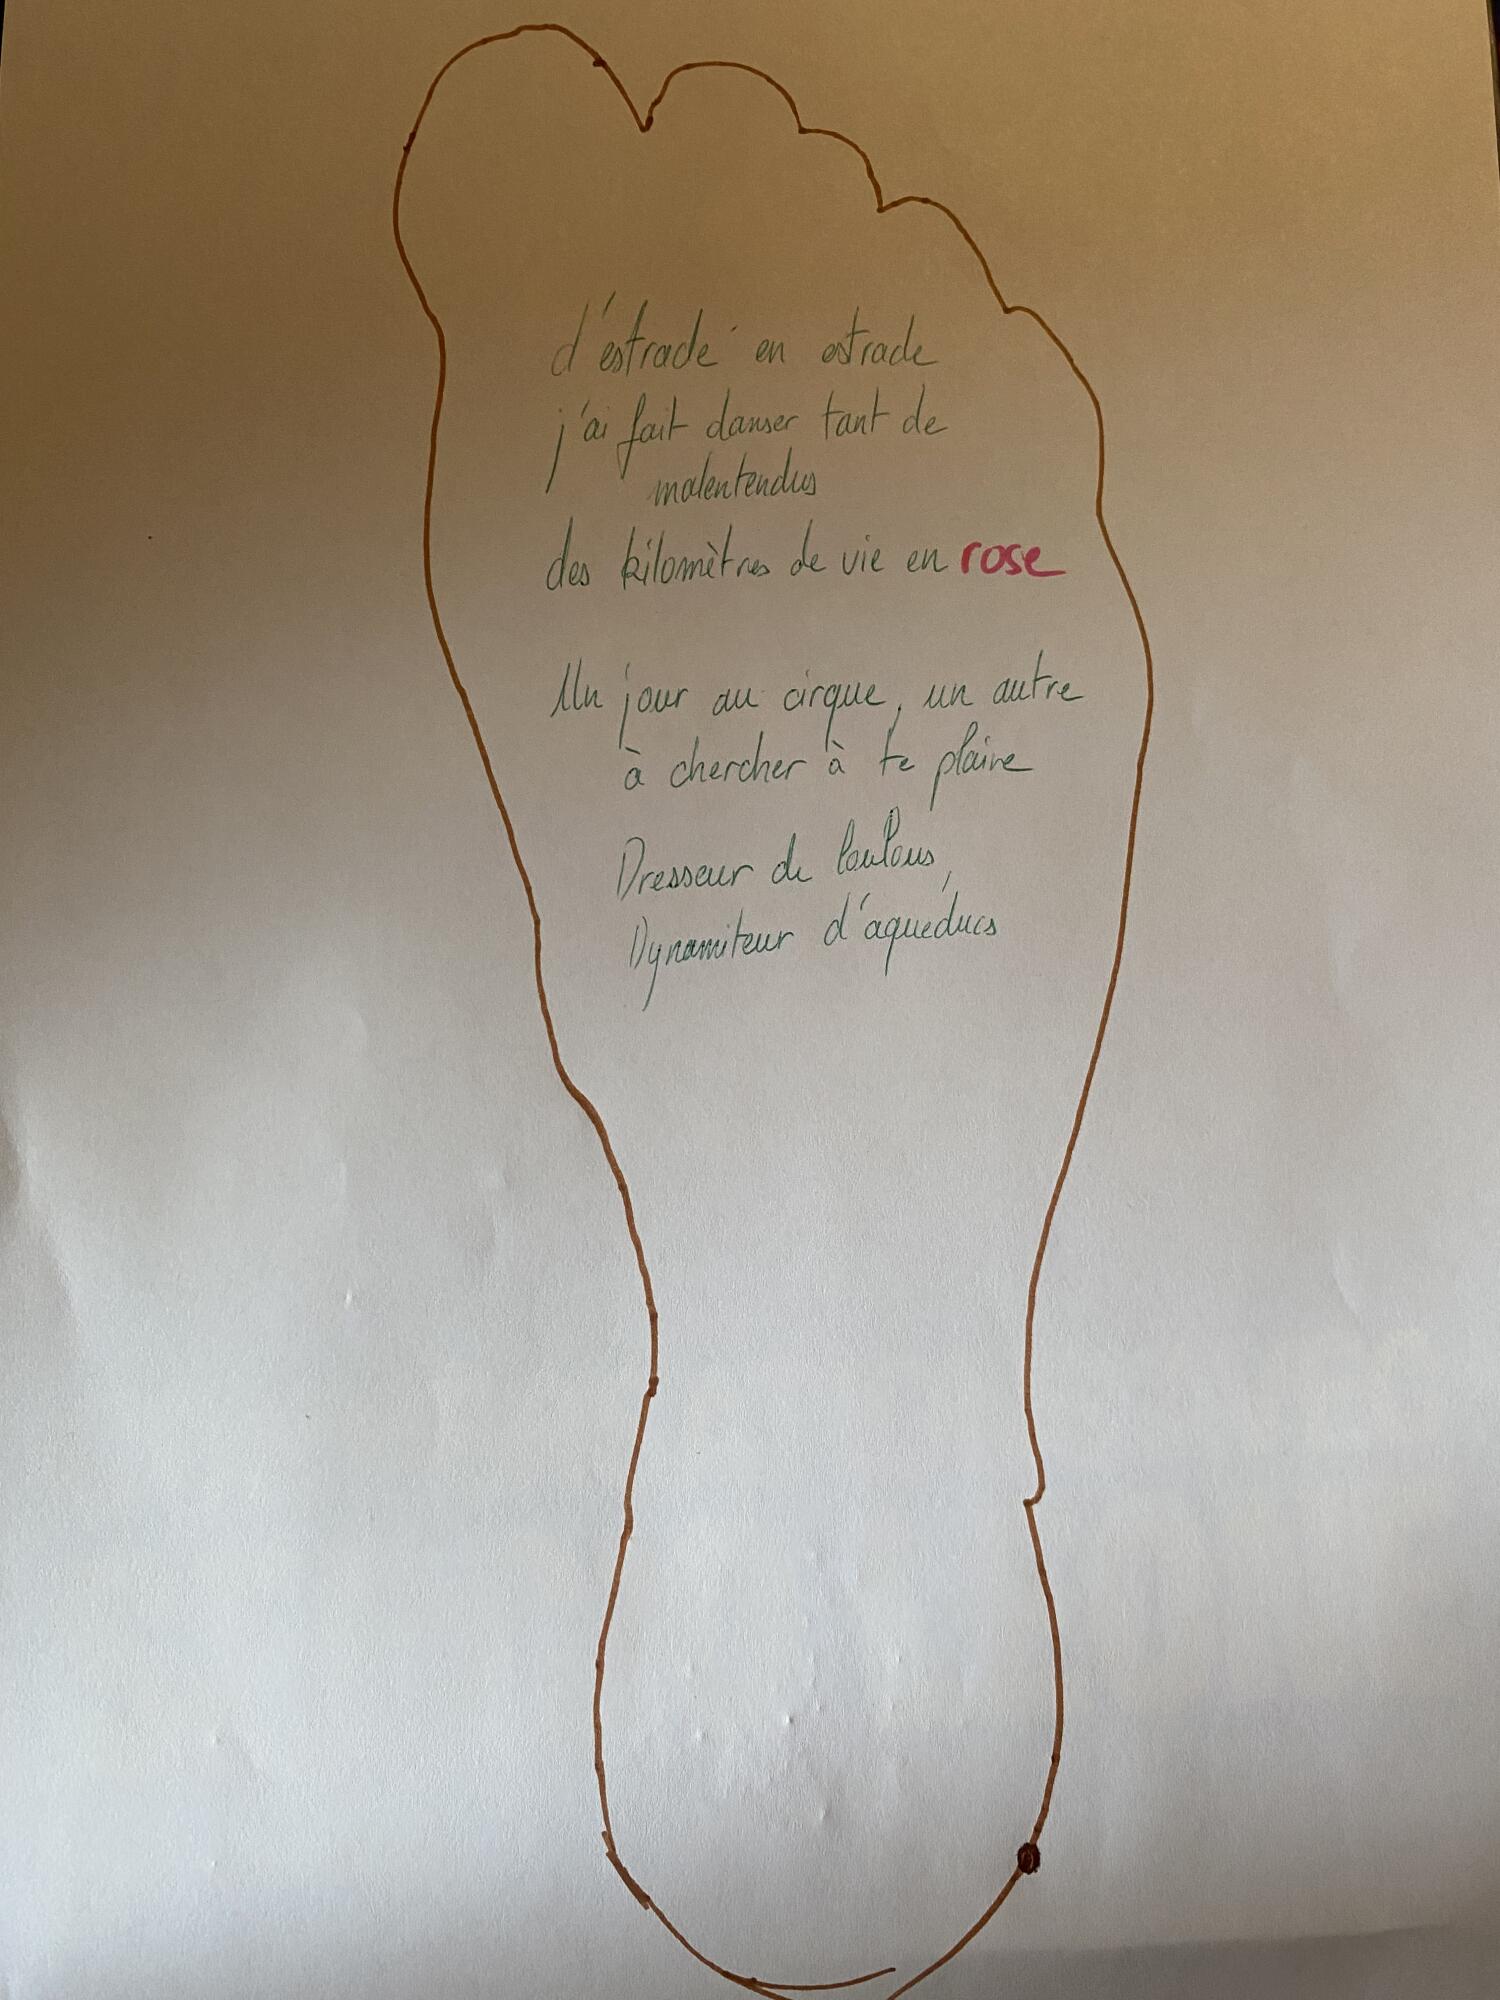 d'estrade en estrade
j'ai fait danser tant de
malentendus
des kilomètres de vie en rose
Un jour au cirque, un autre
à chercher à te plaire
Dresseur de loulous,
Dynamiteur d'aqueducs